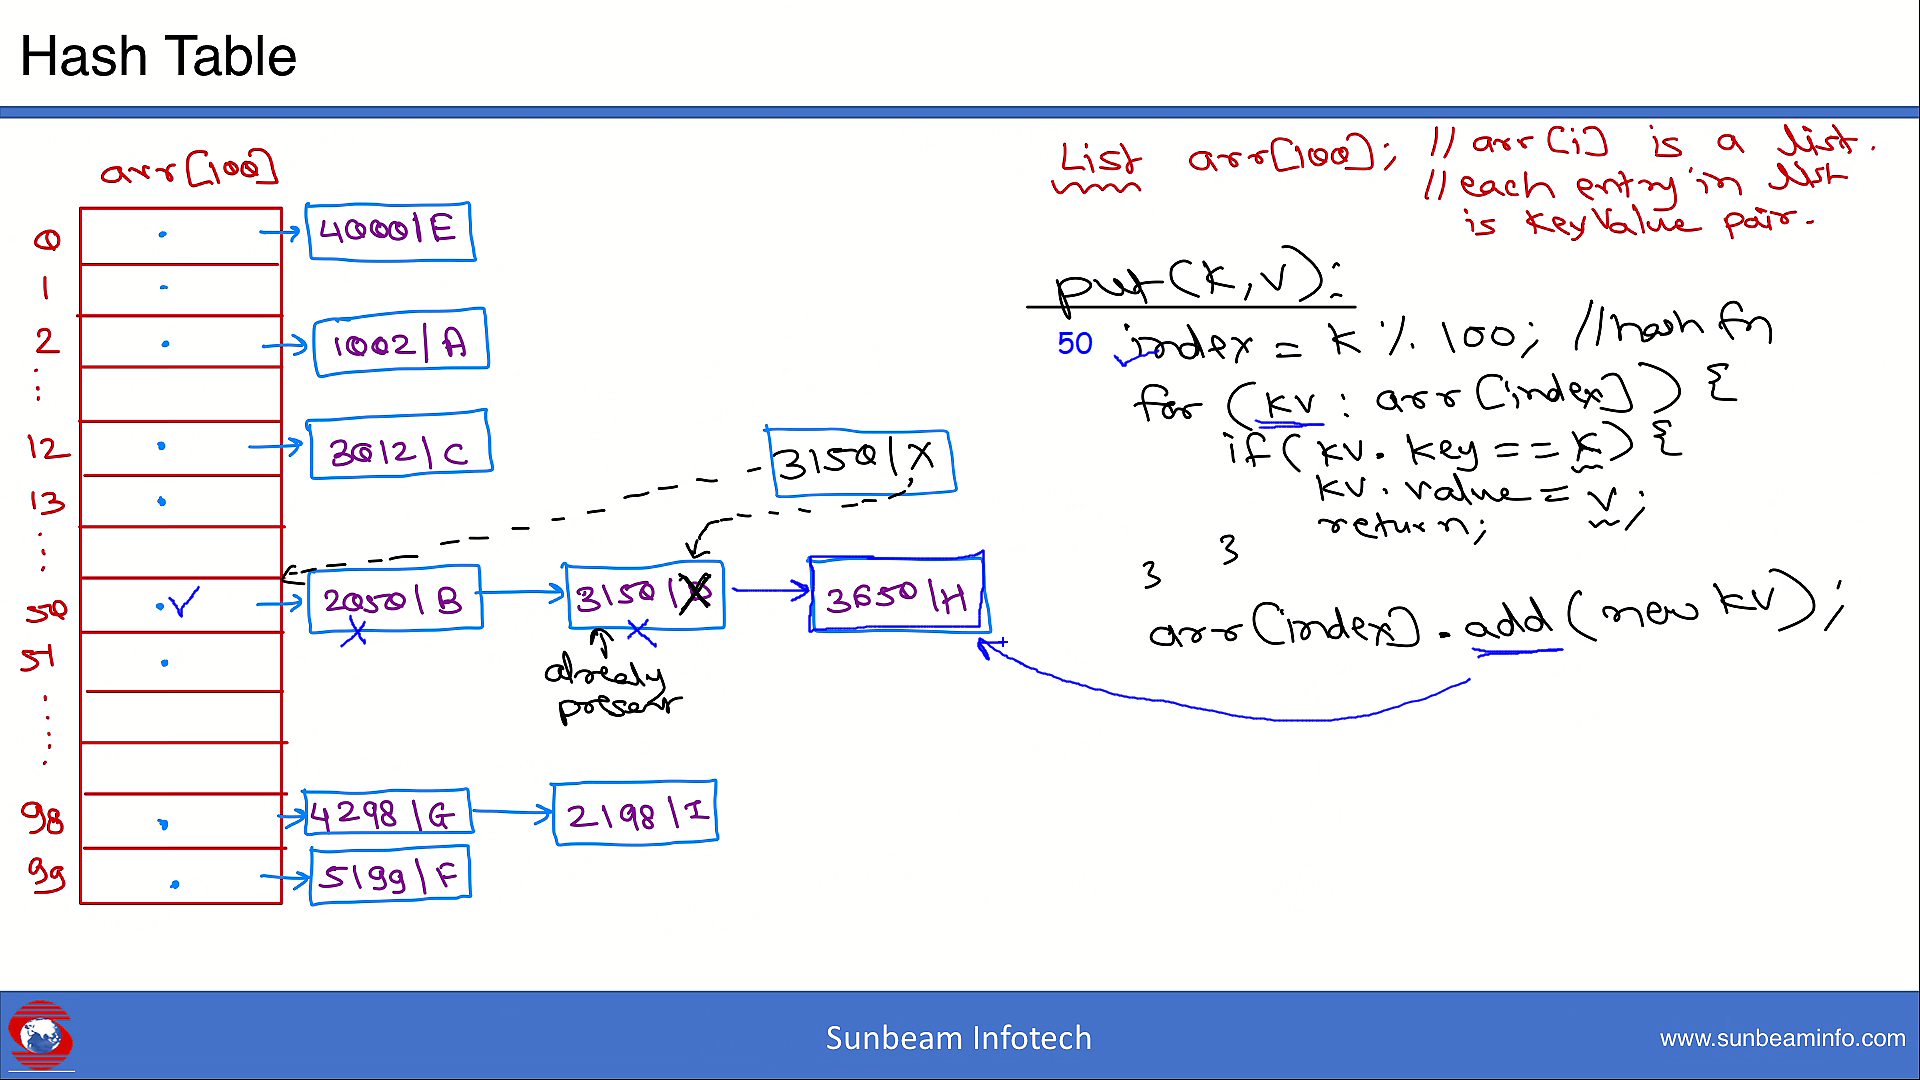 Hash Table
arr[100]
0
4000|E
1
2
1002|A
12
3012|C
13
3150|X
50
2050|B
3150|X
3650|H
already
present
51
98
4298|G
2198|I
99
5199|F
List arr[100]; // arr[i] is a list.
// each entry in list
is KeyValue pair.
put(k,v):
50 index = k % 100; //hash fn
for (kv : arr[index]) {
if(kv.key == k) {
kv.value = v;
return;
}
}
arr[index].add(new kv);
Sunbeam Infotech
www.sunbeaminfo.com